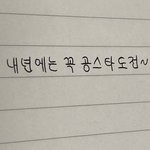 내년에는 꼭 공스타도전~